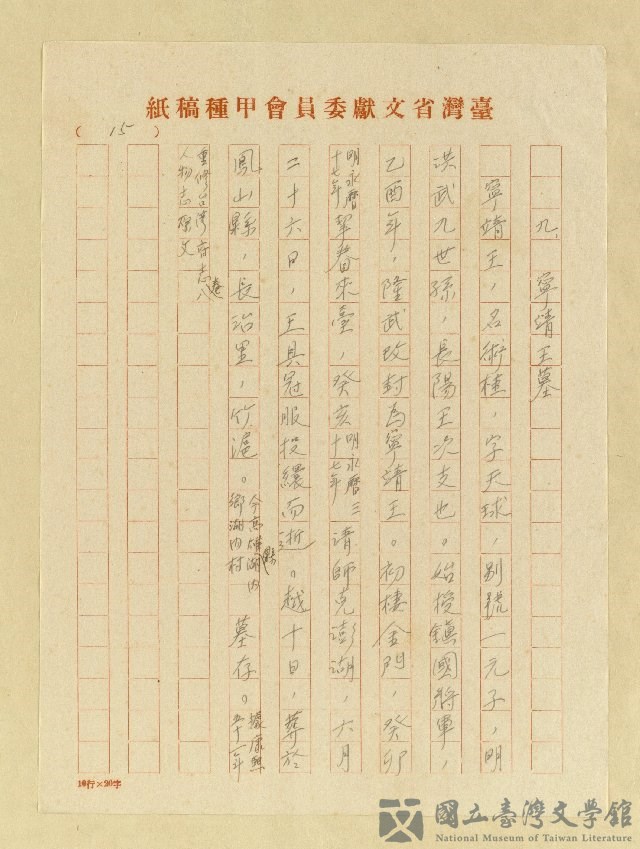 臺灣省文獻委員會甲種稿紙
( 15 )
九、寧靖王墓
寧靖王,名術桂,字天球,別號一元子,明
洪武九世孫,長陽王次支也。始授鎮國將軍,
乙酉年,隆武改封為寧靖王。初棲金門,癸卯
明永曆十七年挈眷來臺,癸亥明永曆三十七年清師克澎湖,六月
二十六日,王具冠服投繯而逝。越十日,葬於
鳳山縣,長治里,竹滬。今高雄縣湖內鄉湖內村墓存。據康熙五十一年
重修台灣府志卷八
人物志原文
10行×20字
國立臺灣文學館
National Museum of Taiwan Literature